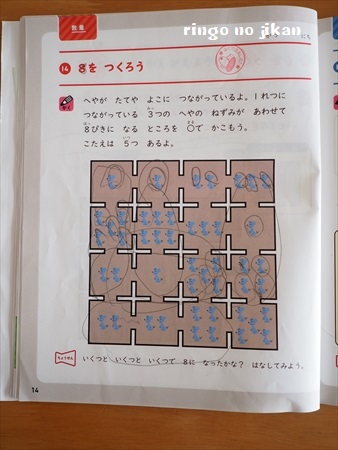 ringo no jikan
数量
にち
14 8を つくろう
へやが たてや よこに つながっているよ。1れつに
つながっている 3つの へやの ねずみが あわせて
8ぴきに なる ところを ○で かこもう。
こたえは 5つ あるよ。
ちょうせん いくつと いくつと いくつで 8に なったかな? はなしてみよう。
14